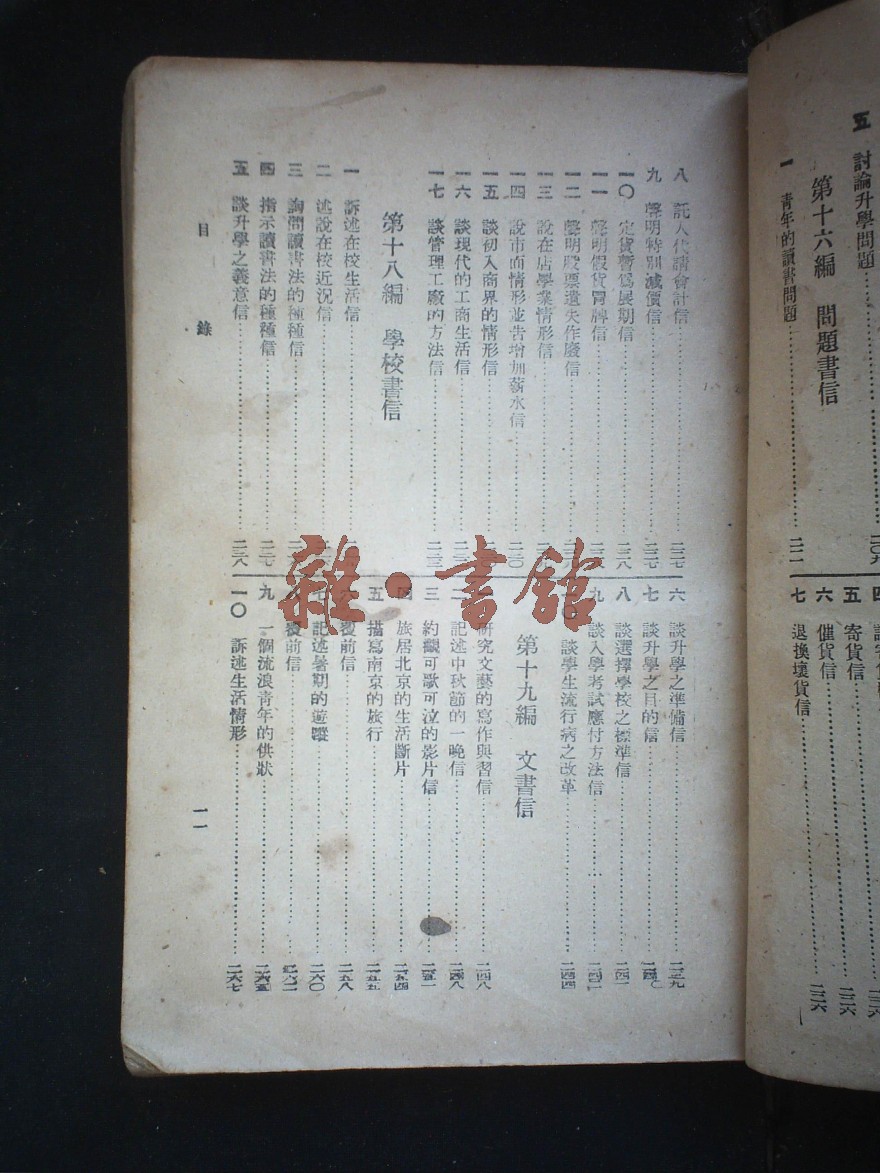 五 討論升學問題……二〇九
第十六編 問題書信
一 青年的讀書問題……二一一
五 寄貨信……二二六
六 催貨信……二二六
七 退換壞貨信……二二六
八 託人代請會計信……二二七
九 聲明特別減價信……二二七
一〇 定貨暫爲展期信……二二八
一一 聲明假貨冒牌信
一二 聲明股票遺失作廢信
一三 說在店學業情形信
一四 說市面情形並吿增加薪水信……二三〇
一五 談初入商界的情形信
一六 談現代的工商生活信
一七 談管理工廠的方法信
第十八編 學校書信
一 訴述在校生活信
二 述說在校近況信
三 詢問讀書法的種種信
四 指示讀書法的種種信……二三七
五 談升學之義意信……二三八
六 談升學之準備信……二三九
七 談升學之目的信……二四〇
八 談選擇學校之標準信……二四一
九 談入學考試應付方法信……二四二
談學生流行病之改革……二四四
第十九編 文書信
研究文藝的寫作與習信……二四八
二 記述中秋節的一晚信……二四八
三 約觀可歌可泣的影片信……二五一
四 旅居北京的生活斷片……二五四
五 描寫南京的旅行……二五五
六 覆前信……二五八
七 記述暑期的遊蹤……二六〇
八 覆前信……二六二
九 一個流浪靑年的供狀……二六五
一〇 訴述生活情形……二六七
目錄
一一
雜·書館